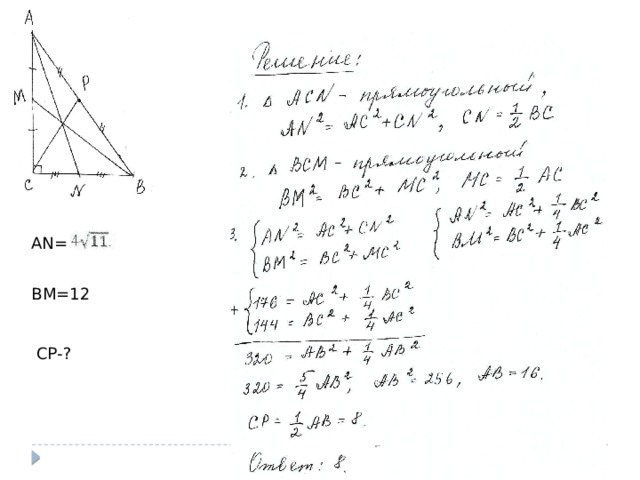 A
4
P
M
4
C
N
B
AN= 4√11.
BM=12
CP-?
Решение:
1. Δ ACN - прямоугольный,
AN² = AC² + CN², CN = 1/2 BC
2. Δ BCM - прямоугольный
BM² = BC² + MC², MC = 1/2 AC
3. { AN² = AC² + CN² { AN² = AC² + 1/4 BC²
BM² = BC² + MC² BM² = BC² + 1/4 AC²
+ { 176 = AC² + 1/4 BC²
144 = BC² + 1/4 AC²
320 = AB² + 1/4 AB²
320 = 5/4 AB², AB² = 256, AB = 16.
CP = 1/2 AB = 8.
Ответ: 8.